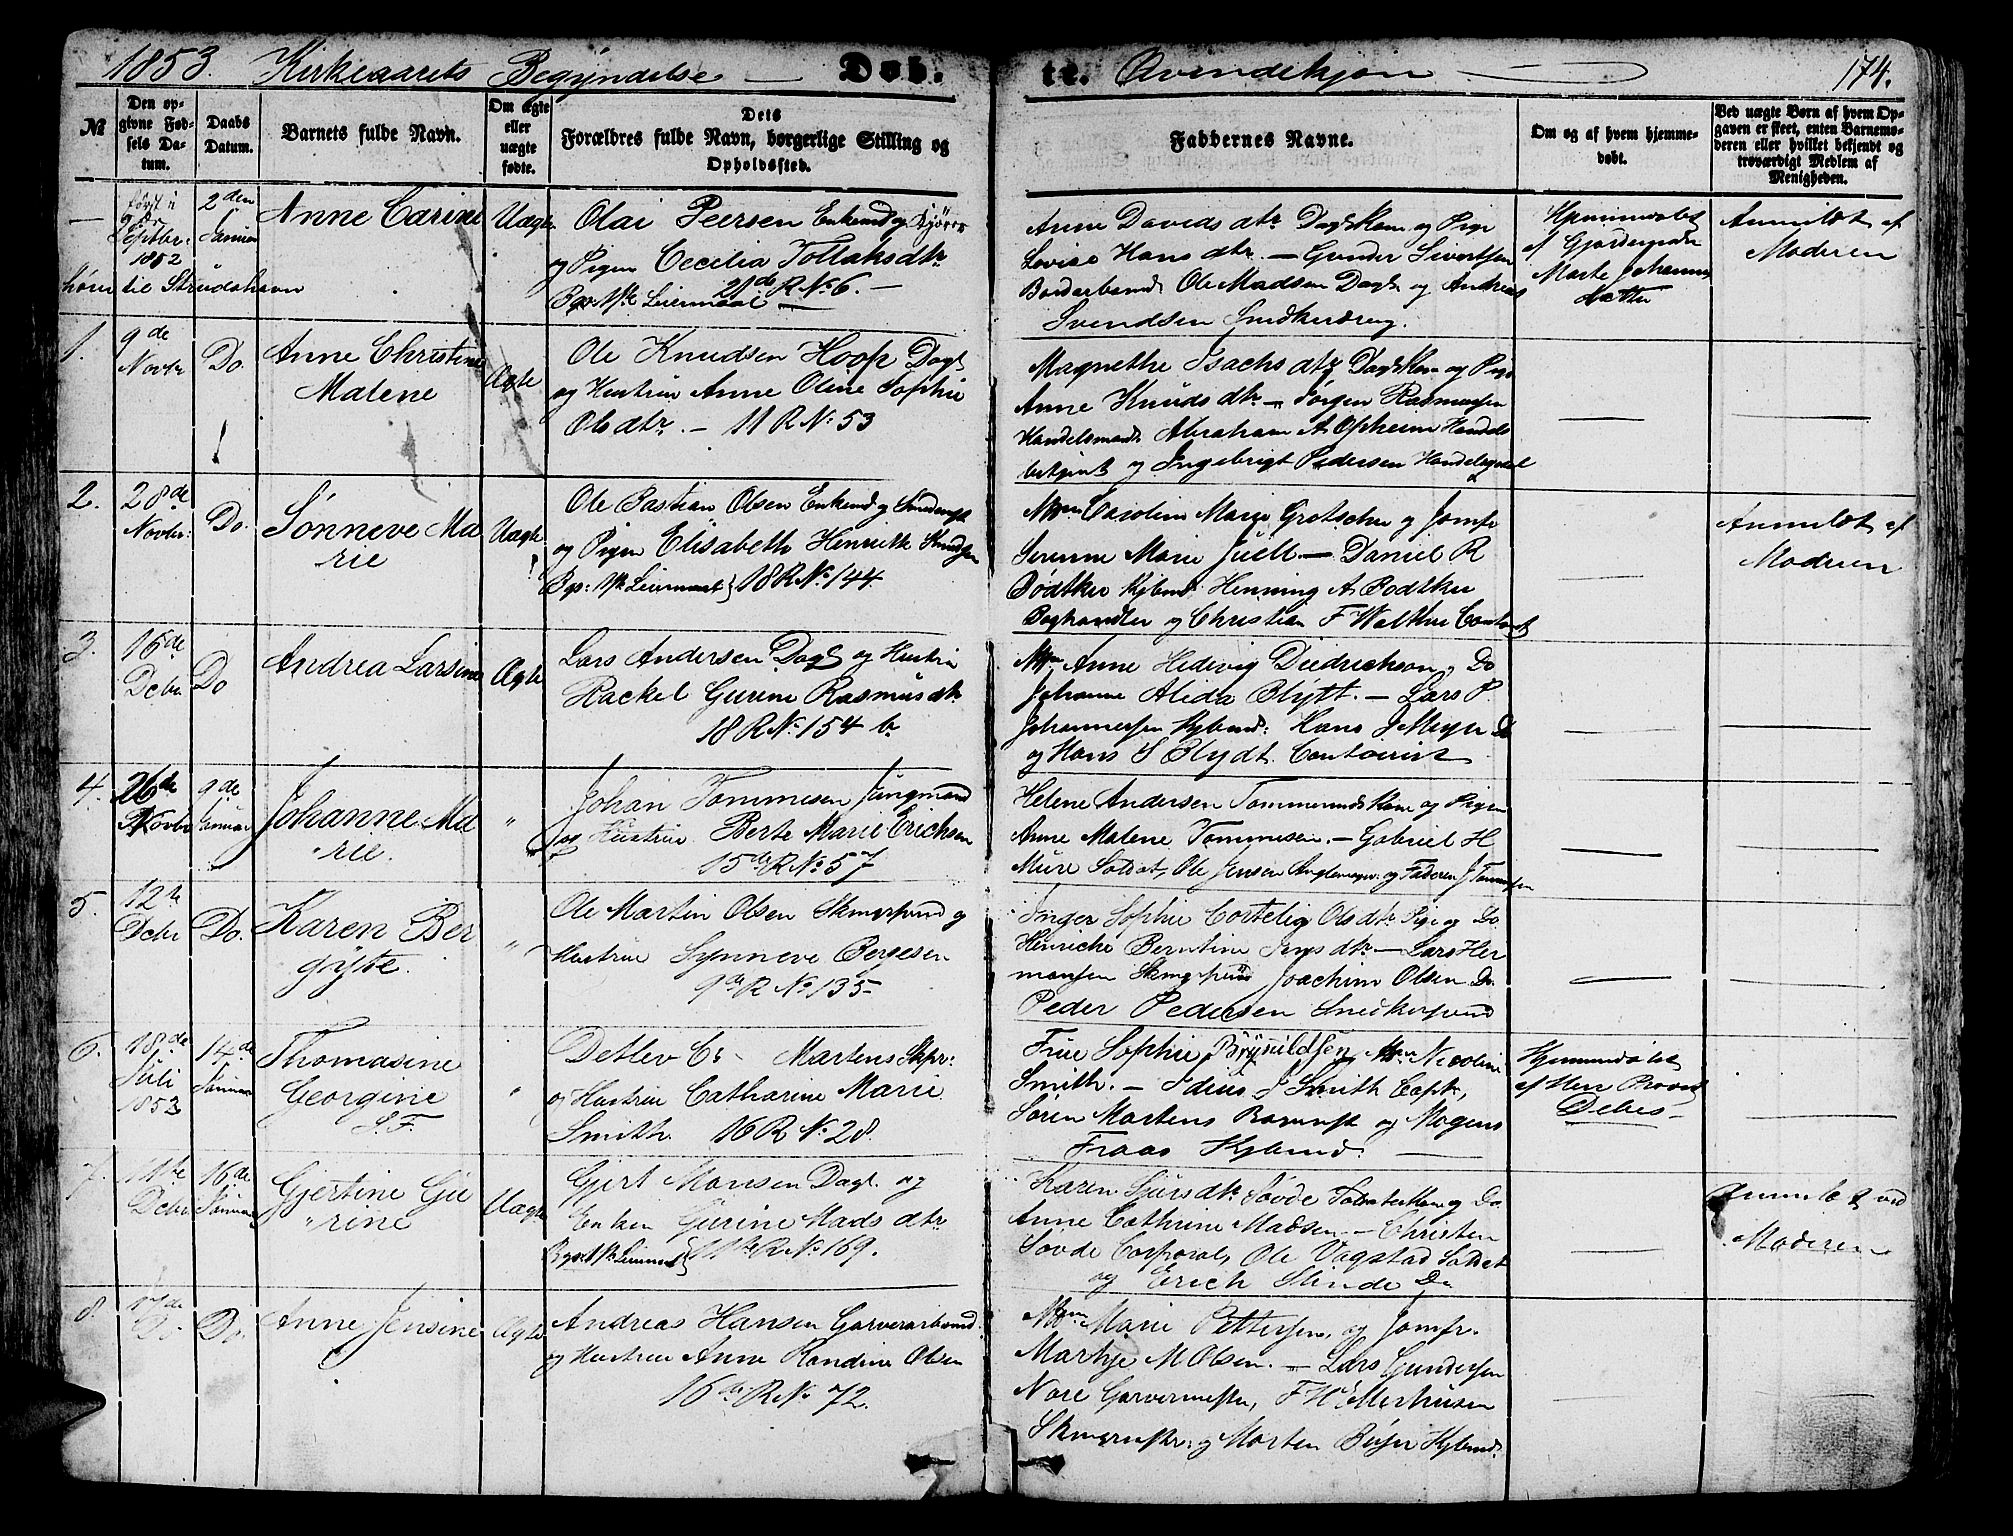 1853. Kirkeaarets Begyndelse — Døb. te. Qvindekjøn — 174.
№
Den opgivne Fødsels Datum.
Daabs Datum.
Barnets fulde Navn.
Om ægte eller uægte fødte.
Dets Forældres fulde Navn, borgerlige Stilling og Opholdssted.
Faddernes Navne.
Om og af hvem hjemmedøbt.
Ved uægte Børn af hvem Opgaven er skeet, enten Barnemoderen eller hvilket bekjendt og troværdigt Medlem af Menigheden.
født i
Septbr:
1852
2den
Januar
Anne Carine
Uægte
Olai Peersen Enkemd og
og Pigen Cecilia Tollaksdtr
Leiermaal 21de R № 6. —
hører til Strudshavn
Anne Davidsdtr Dagsk Kone og Pige
Lovise Hansdtr. — Gunder Sivertsen
Ole Madsen Dagk og Andreas
Svendsen Snedkerdreng.
Hjemmedøbt
af Gjordemoder
Marte Johannes
Anmeldt af
Moderen
1.
9de
Novbr
Do.
Anne Christine
Malene
Ægte
Ole Knudsen Hoop Dagk
og Hustrue Anne Olene Sophie
Olsdtr. — 11 R № 53
Magnethe Isachsdtr Dagsk Kone og Pige
Anne Knudsdtr — Jørgen Rasmussen
Handelsmand Abraham A Opheim Handels
betjent og Ingebrigt Pedersen
2.
28de
Novbr:
Do.
Sønneve Ma
rie
Uægte
Ole Bastian Olsen Enkemd og
og Pigen Elisabeth Henrikke Knudsen
Leiermaal 18 R № 144.
Caroline Marie og Jomfr
Serenne Marie Juell — Daniel R
Bødtker Kjbmd Henning A Bødtker
Boghandler og Christian F Walther Contorist
Anmeldt af
Moderen
3.
16de
Debr
Do
Andrea Larsine
Ægte
Lars Andersen Dagk og Hustrue
Rackel Gurine Rasmusdtr
18 R № 154 b
Anne Hedevig Diedrichson, Do
Johanne Alida Blytt. — Lars P.
Johannessen Kjbmd: Hans J Meyer Do
og Hans S Blydt. Contorist
4.
26de
Novbr
9de
Januar
Johanne Ma
rie.
"
Johan Tommesen Jungmand
og Hustrue Berte Marie Erichsen
15de R № 57
Helene Andersen Tømmermds Kone og Pigen
Anne Malene Tommesen. — Gabriel H
Mure Soldat, Ole Jensen og Faderen J Tommesen
5.
12te
Debr
Do.
Karen Ber
gitte.
"
Ole Martin Olsen Skmrsvend og
Hustrue Synneve Bergesen
9de R № 135
Inger Sophie Olsdtr Pige og Do
Henriche Berntine Jensdtr — Lars Her
mansen Skmgsvend Joachim Olsen Do.
Peder Pedersen Snedkersvend
6.
18de
Juli
1852
14de
Januar
Thomasine
Georgine
S. F.
"
Detlev C. Martens Skpr:
og Hustrue Catharine Marie
Smith. 16 R № 28.
Frue Sophie Brynildsen, Nicoline
Smith. — Idius J Smith Capt,
Søren Martens og Mogens
Fraas Kjbmd. —
Hjemmedøbt
af Herr Provst
Debes —
7.
11te
Debr
16de
Januar
Gjertine Gu
rine
Uægte
Gjert Monsen Dagk. og
Enken Gurine Madsdtr
11te R № 169.
Karen Sjursdtr Søvde Soldaterkone og Do
Anne Cathrine Madsen — Christen
Søvde Corporal, Ole Vagstad Soldat
og Erich Slinde Do
Anmeldt ved
Moderen
8.
17de
Do.
Do.
Anne Jensine
Ægte
Andreas Hansen Garverarbmd.
og Hustrue Anne Randine Olsen
16de R № 72.
Marie Pettersen, og Jomfr.
Marthe M Olsen. — Lars Gundersen
Nore Garvermester, F W Ellerhusen
Skmgrmstr: og Morten Beyer Kjbmd.